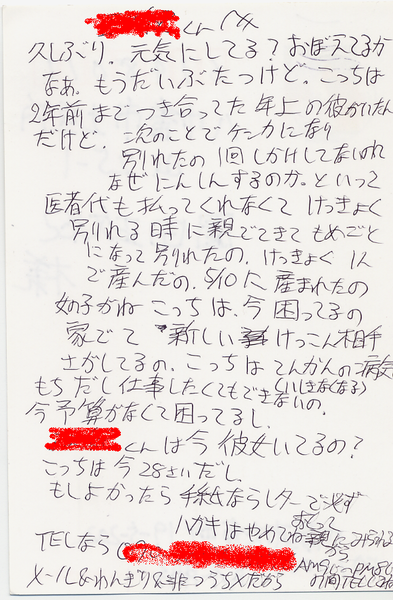 くんへ
久しぶり。元気にしてる？おぼえてるか
なあ。もうだいぶたつけど。こっちは
2年前までつき合ってた年上の彼がいたん
だけど。次のことでケンカになり
別れたの1回しかけしてないのに
なぜにんしんするのか。といって
医者代も払ってくれなくてけっきょく
別れる時に親でてきてもめごと
になって別れたの。けっきょく1人
で産んだの。5/10に産まれたの
女の子がね こっちは、今困ってるの
家でて 新しいけっこん相手
さがしてるの。こっちはてんかんの病気
もちだし仕事したくてもできないの。
(いしきなくなる)
今予算がなくて困ってるし、
くんは今彼女いてるの？
こっちは今28さいだし、
もしよかったら手紙ならレターで必ず
おくって
ハガキはやめてね親にみられる
から
TELなら
AM9じ〜PM8じ
の間TELしてね
メール&わんぎり&非つうち×だから